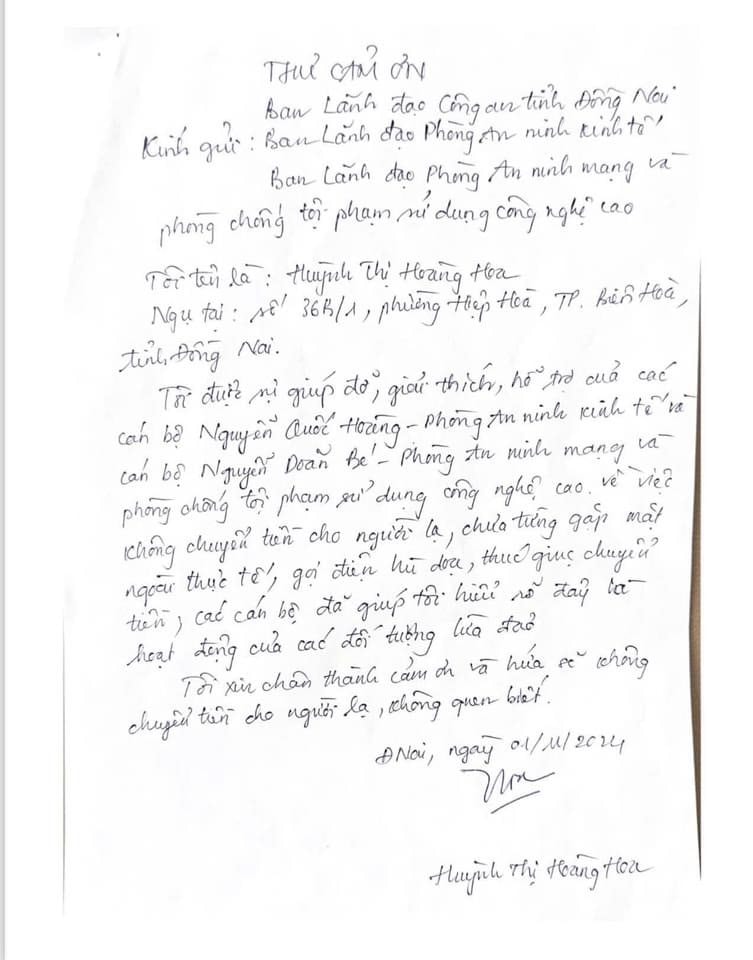 THƯ CẢM ƠN
Ban Lãnh đạo Công an tỉnh Đồng Nai
Kính gửi : Ban Lãnh đạo Phòng An ninh kinh tế
Ban Lãnh đạo Phòng An ninh mạng và
phòng chống tội phạm sử dụng công nghệ cao
Tôi tên là : Huỳnh Thị Hoàng Hoa
Ngụ tại : số 36B/1, phường Hiệp Hoà, TP. Biên Hoà,
tỉnh Đồng Nai.
Tôi được sự giúp đỡ, giải thích, hỗ trợ của các
cán bộ Nguyễn Quốc Hoàng - Phòng An ninh kinh tế và
cán bộ Nguyễn Doãn Bé - Phòng An ninh mạng và
phòng chống tội phạm sử dụng công nghệ cao. về việc
không chuyển tiền cho người lạ, chưa từng gặp mặt
ngoài thực tế, gọi điện hù dọa, thúc giục chuyển
tiền, các cán bộ đã giúp tôi hiểu rõ đây là
hoạt động của các đối tượng lừa đảo
Tôi xin chân thành cảm ơn và hứa sẽ không
chuyển tiền cho người lạ, không quen biết.
ĐNai, ngày 01/11/2024
Hoa
Huỳnh Thị Hoàng Hoa